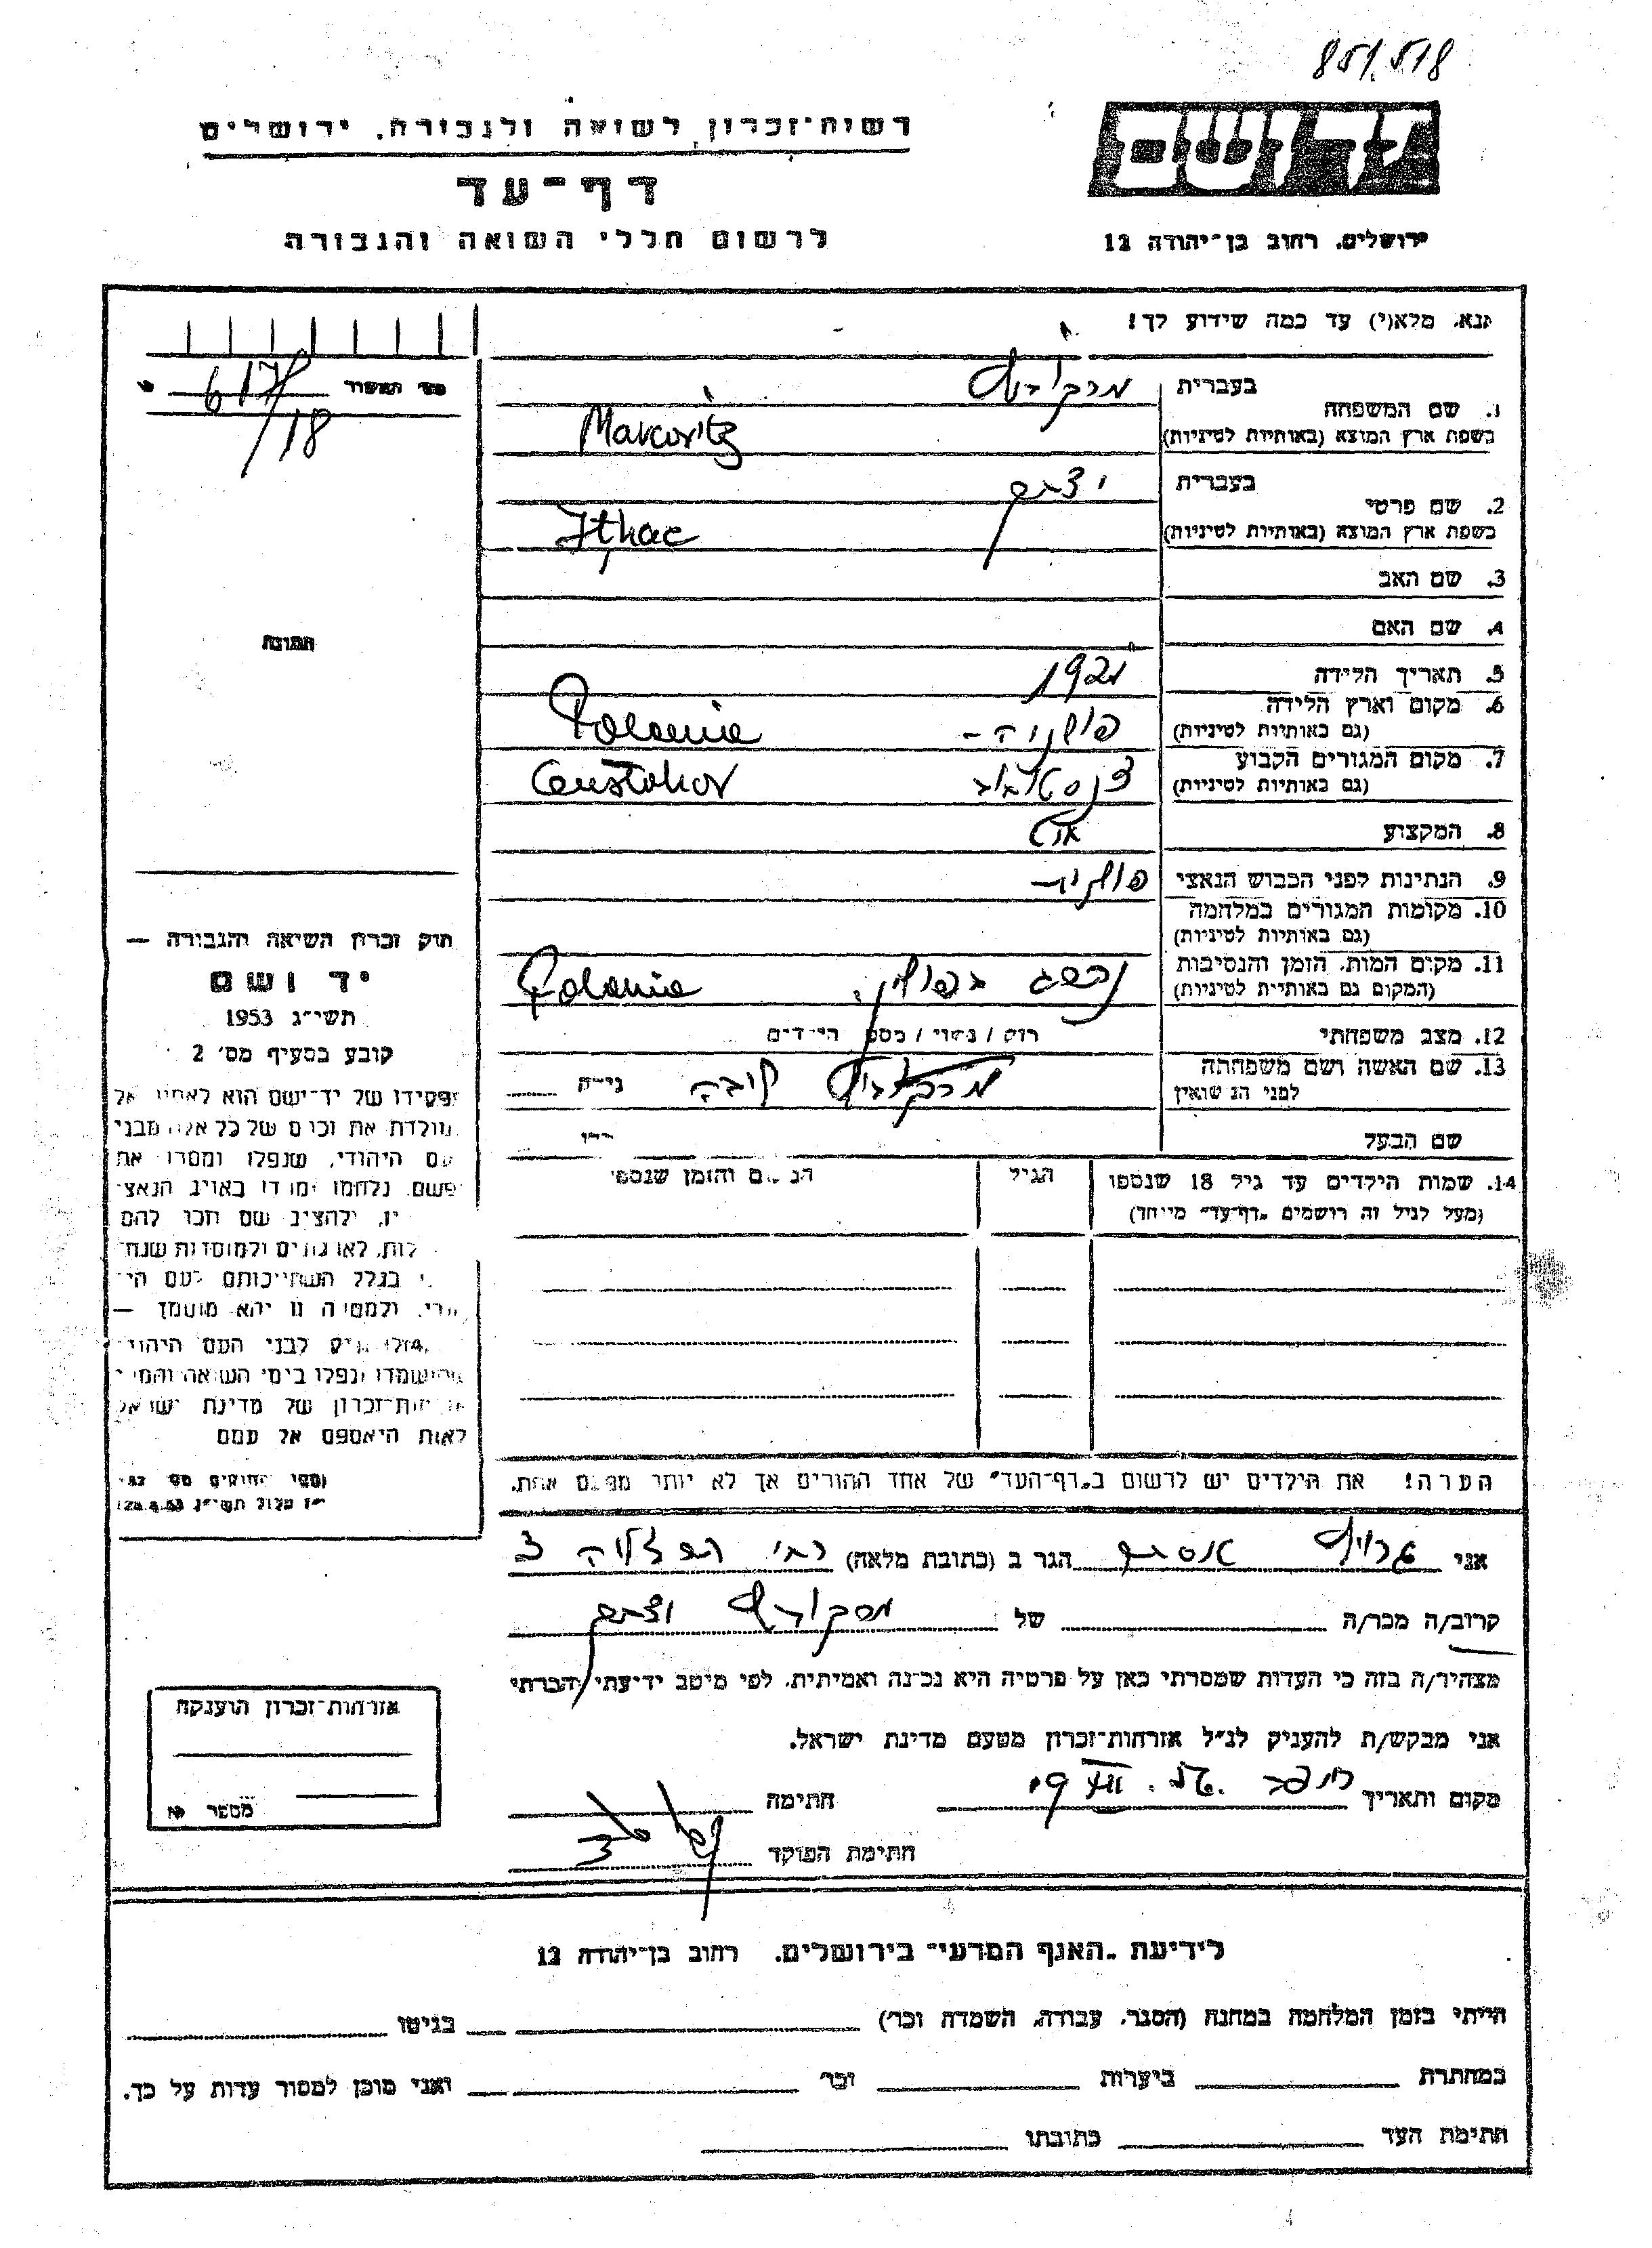 851.518
רשות-זכרון לשואה ולגבורה. ירושלים
דף-עד
לרשום חללי השואה והגבורה
ירושלים. רחוב בן-יהודה 12
נא. מלא(י) עד כמה שידוע לך!
617/18
1. שם המשפחה
בעברית מרקוביץ
בשפת ארץ המוצא (באותיות לטיניות) Marcovitz
2. שם פרטי
בעברית יצחק
בשפת ארץ המוצא (באותיות לטיניות) Ithac
3. שם האב
4. שם האם
5. תאריך הלידה 1921
6. מקום וארץ הלידה פולניה- Polania
(גם באותיות לטיניות)
7. מקום המגורים הקבוע
(גם באותיות לטיניות) Censtohov
8. המקצוע
9. הנתינות לפני הכבוש הנאצי פולנית
10. מקומות המגורים במלחמה
(גם באותיות לטיניות)
11. מקום המות. הזמן והנסיבות Polania
(המקום גם באותיות לטיניות)
12. מצב משפחתי רוק / נשוי / מספר הילדים
13. שם האשה ושם משפחתה מרקוביץ
לפני הנשואין
שם הבעל
14. שמות הילדים עד גיל 18 שנספו
(מעל לגיל זה רושמים "דף-עד" מיוחד)
הגיל
המקום והזמן שנספו
הערה! את הילדים יש לרשום ב"דף-העד" של אחד ההורים אך לא יותר מפעם אחת.
תמונה
חוק זכרון השואה והגבורה —
יד ושם
תשי"ג 1953
קובע בסעיף מס' 2
תפקידו של יד-ושם הוא לאסוף אל
המולדת את זכרם של כל אלה מבני
עם היהודי, שנפלו ומסרו את
נפשם. נלחמו ומרדו באויב הנאצי
ולהציב שם וזכר להם
לארגונים ולמוסדות
בגלל השתייכותם לעם
ולמטרה זו יהא מוסמך —
לבני העם היהודי
שהושמדו ונפלו בימי השואה והמרי
אזרחות-זכרון של מדינת ישראל
לאות היאספם אל עמם
אני הגר ב (כתובת מלאה)
קרוב/ה מכר/ה של מרקוביץ יצחק
מצהיר/ה בזה כי העדות שמסרתי כאן על פרטיה היא נכונה ואמיתית. לפי מיטב ידיעתי והכרתי
אני מבקש/ת להעניק לנ"ל אזרחות-זכרון מטעם מדינת ישראל.
מקום ותאריך
חתימה
חתימת הפוקד
אזרחות-זכרון הוענקה
מספר №
לידיעת "האגף המדעי" בירושלים. רחוב בן-יהודה 12
הייתי בזמן המלחמה במחנה (הסגר. עבודה. השמדה וכו') בגיטו
במחתרת ביערות וכו' ואני מוכן למסור עדות על כך.
חתימת העד כתובתו